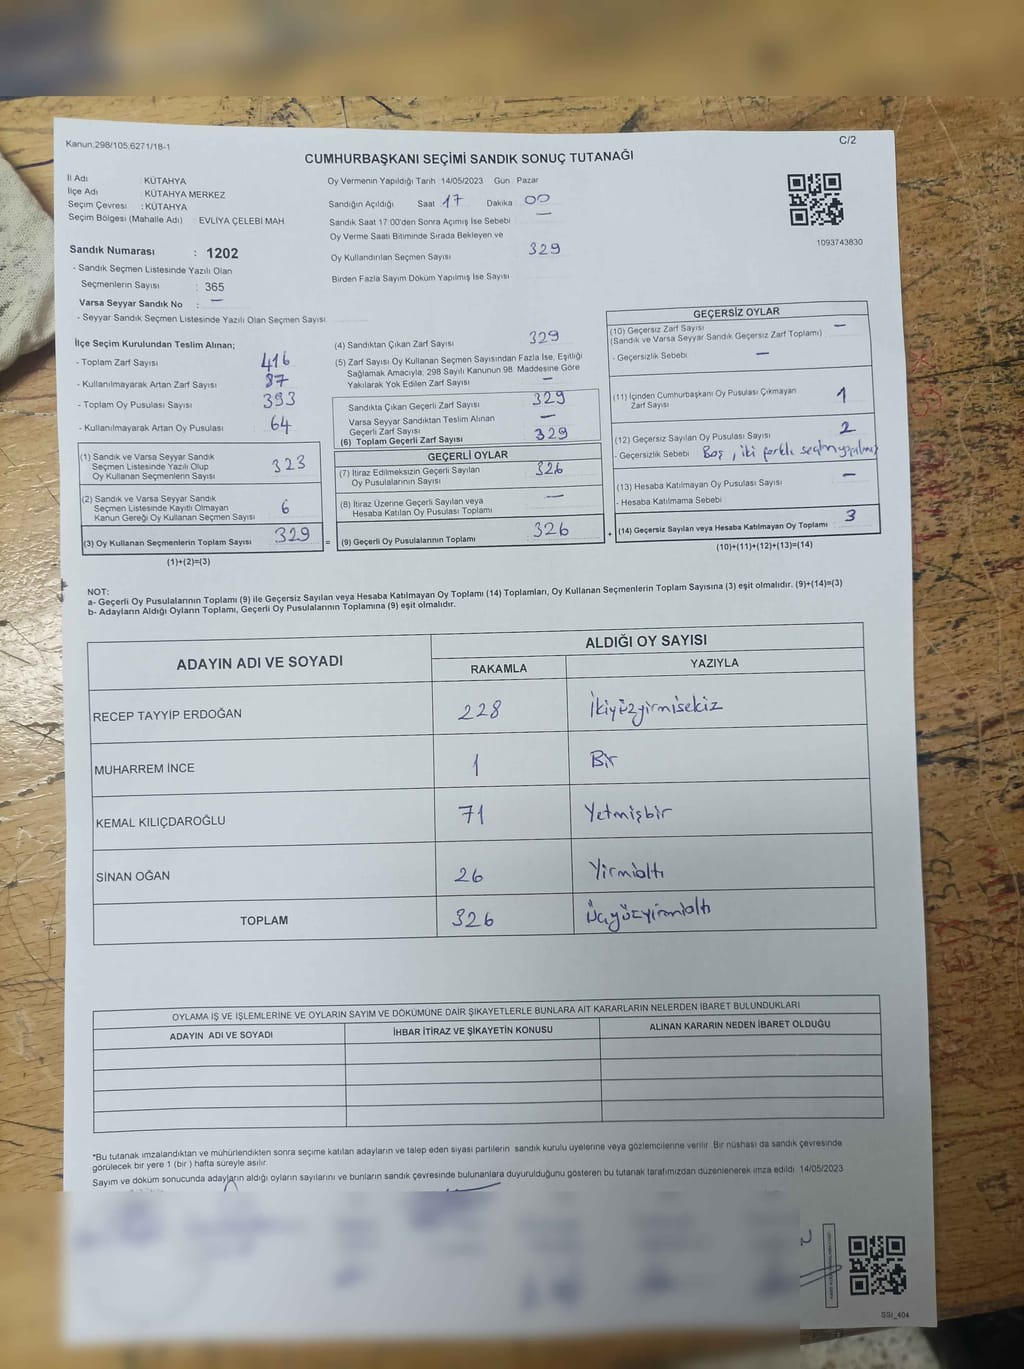 Kanun:298/105.6271/18-1
C/2
CUMHURBAŞKANI SEÇİMİ SANDIK SONUÇ TUTANAĞI
İl Adı : KÜTAHYA
İlçe Adı : KÜTAHYA MERKEZ
Seçim Çevresi : KÜTAHYA
Seçim Bölgesi (Mahalle Adı) : EVLİYA ÇELEBİ MAH
Oy Vermenin Yapıldığı Tarih 14/05/2023 Gün : Pazar
Sandığın Açıldığı Saat 17 Dakika 00
Sandık Saat 17:00'den Sonra Açımış İse Sebebi —
Oy Verme Saati Bitiminde Sırada Bekleyen ve
Oy Kullandırılan Seçmen Sayısı 329
Birden Fazla Sayım Döküm Yapılmış İse Sayısı
1093743830
Sandık Numarası : 1202
- Sandık Seçmen Listesinde Yazılı Olan
Seçmenlerin Sayısı : 365
Varsa Seyyar Sandık No : —
- Seyyar Sandık Seçmen Listesinde Yazılı Olan Seçmen Sayısı
İlçe Seçim Kurulundan Teslim Alınan;
- Toplam Zarf Sayısı 416
- Kullanılmayarak Artan Zarf Sayısı 87
- Toplam Oy Pusulası Sayısı 393
- Kullanılmayarak Artan Oy Pusulası 64
(1) Sandık ve Varsa Seyyar Sandık
Seçmen Listesinde Yazılı Olup
Oy Kullanan Seçmenlerin Sayısı 323
(2) Sandık ve Varsa Seyyar Sandık
Seçmen Listesinde Kayıtlı Olmayan
Kanun Gereği Oy Kullanan Seçmen Sayısı 6
(3) Oy Kullanan Seçmenlerin Toplam Sayısı 329
(1)+(2)=(3)
(4) Sandıktan Çıkan Zarf Sayısı 329
(5) Zarf Sayısı Oy Kullanan Seçmen Sayısından Fazla İse, Eşitliği
Sağlamak Amacıyla, 298 Sayılı Kanunun 98. Maddesine Göre
Yakılarak Yok Edilen Zarf Sayısı —
Sandıkta Çıkan Geçerli Zarf Sayısı 329
Varsa Seyyar Sandıktan Teslim Alınan
Geçerli Zarf Sayısı —
(6) Toplam Geçerli Zarf Sayısı 329
GEÇERLİ OYLAR
(7) İtiraz Edilmeksizin Geçerli Sayılan
Oy Pusulalarının Sayısı 326
(8) İtiraz Üzerine Geçerli Sayılan veya
Hesaba Katılan Oy Pusulası Toplamı —
= (9) Geçerli Oy Pusulalarının Toplamı 326
GEÇERSİZ OYLAR
(10) Geçersiz Zarf Sayısı —
(Sandık ve Varsa Seyyar Sandık Geçersiz Zarf Toplamı)
- Geçersizlik Sebebi —
(11) İçinden Cumhurbaşkanı Oy Pusulası Çıkmayan
Zarf Sayısı 1
(12) Geçersiz Sayılan Oy Pusulası Sayısı 2
- Geçersizlik Sebebi Boş, iki farklı seçim yapılmış
(13) Hesaba Katılmayan Oy Pusulası Sayısı —
- Hesaba Katılmama Sebebi
+ (14) Geçersiz Sayılan veya Hesaba Katılmayan Oy Toplamı 3
(10)+(11)+(12)+(13)=(14)
NOT:
a- Geçerli Oy Pusulalarının Toplamı (9) ile Geçersiz Sayılan veya Hesaba Katılmayan Oy Toplamı (14) Toplamları, Oy Kullanan Seçmenlerin Toplam Sayısına (3) eşit olmalıdır. (9)+(14)=(3)
b- Adayların Aldığı Oyların Toplamı, Geçerli Oy Pusulalarının Toplamına (9) eşit olmalıdır.
ADAYIN ADI VE SOYADI
ALDIĞI OY SAYISI
RAKAMLA YAZIYLA
RECEP TAYYİP ERDOĞAN 228 İkiyüzyirmisekiz
MUHARREM İNCE 1 Bir
KEMAL KILIÇDAROĞLU 71 Yetmişbir
SİNAN OĞAN 26 Yirmialtı
TOPLAM 326 Üçyüzyirmialtı
OYLAMA İŞ VE İŞLEMLERİNE VE OYLARIN SAYIM VE DÖKÜMÜNE DAİR ŞİKAYETLERLE BUNLARA AİT KARARLARIN NELERDEN İBARET BULUNDUKLARI
ADAYIN ADI VE SOYADI İHBAR İTİRAZ VE ŞİKAYETİN KONUSU ALINAN KARARIN NEDEN İBARET OLDUĞU
*Bu tutanak imzalandıktan ve mühürlendikten sonra seçime katılan adayların ve talep eden siyasi partilerin sandık kurulu üyelerine veya gözlemcilerine verilir. Bir nüshası da sandık çevresinde
görülecek bir yere 1 (bir) hafta süreyle asılır.
Sayım ve döküm sonucunda adayların aldığı oyların sayılarını ve bunların sandık çevresinde bulunanlara duyurulduğunu gösteren bu tutanak tarafımızdan düzenlenerek imza edildi. 14/05/2023
SSI_404